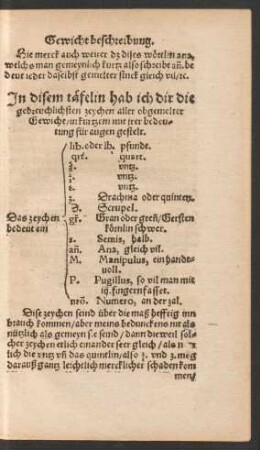 Gewicht beschreibung.
Hie merck auch weiter dz dises wörtlin ana,
welchs man gemeynlich kurtz also schreibt añ. be
deut ieder daselbst gemelter stuck gleich vil/ꝛc.
In disem täfelin hab ich dir die
gebreuchlichsten zeychen aller obgemelter
Gewichte/in kürtzem mit irer bedeu-
tung für augen gestelt.
lib. oder lb. pfundt.
qrt. quart.
vntz.
vntz.
vntz.
Drachma oder quinten.
Scrupel.
Das zeychen
bedeut ein
gr. Gran oder greñ/Gersten
körnlin schwer.
s. Semis, halb.
añ. Ana, gleich vil.
M. Manipulus, ein handt-
voll.
P. Pugillus, so vil man mit
iij. fingern fasset.
nrõ. Numero, an der zal.
Dise zeychen seind über die maß hefftig inn
brauch kommen/aber meins beduncke ns nit als
nützlich als gemeyn s.e seind / dann die weil sol-
cher zeychen etlich einander seer gleich / als n
lich die vntz vñ das quintlin/also ʒ. vnd ʒ. mag
darauß gantz leichtlich mercklicher schaden kom
men/